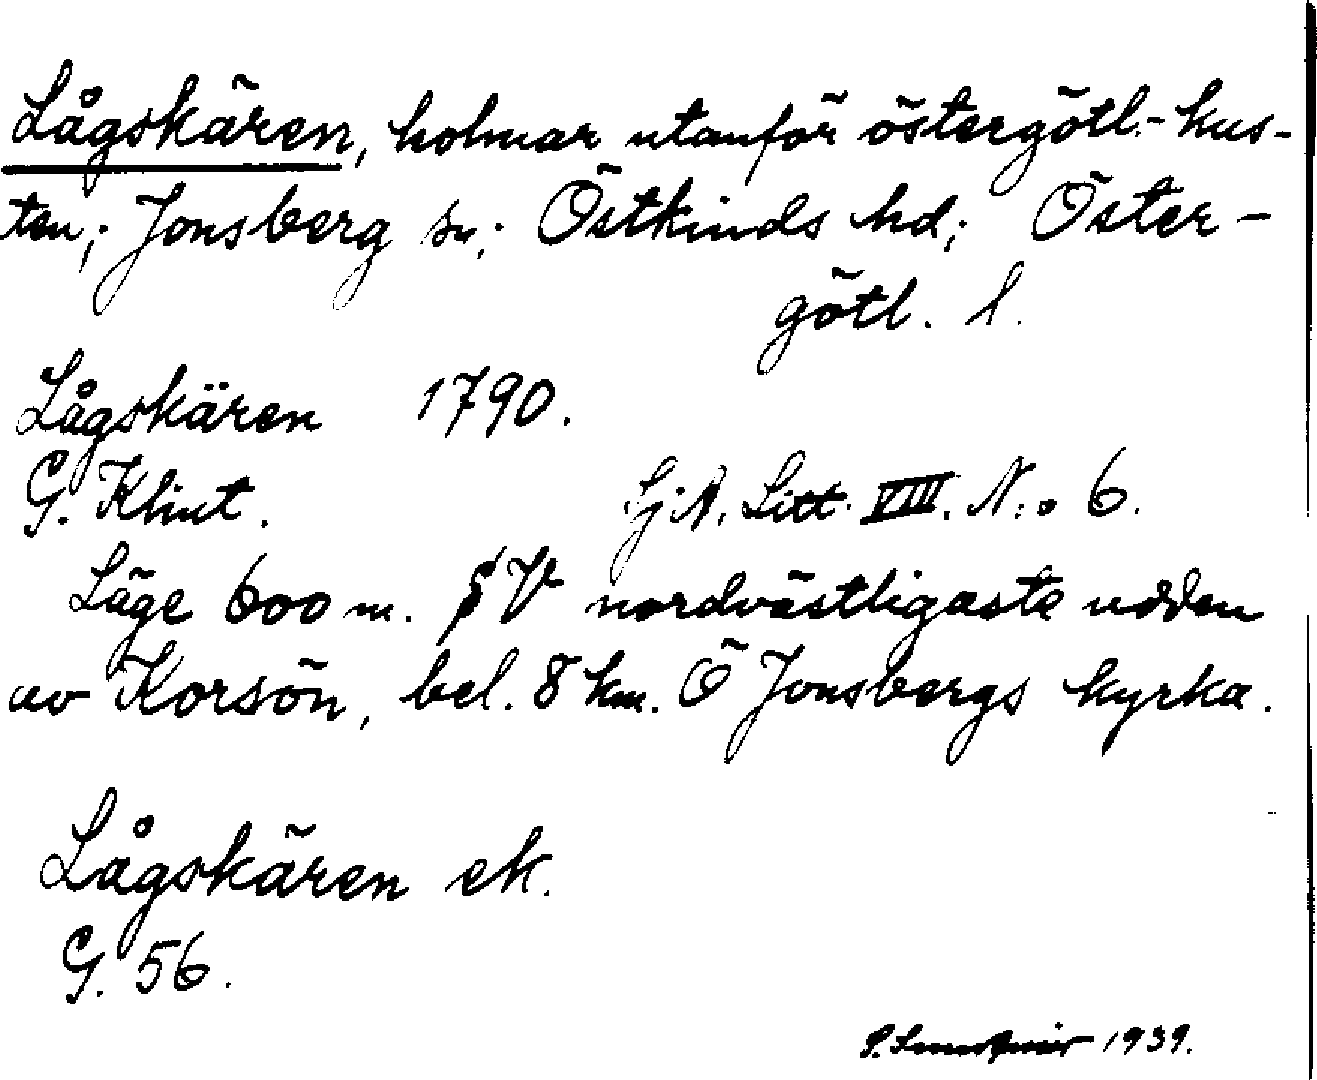 Lågskären, holmar utanför östergötl.- kus-
ten; Jonsberg sn; Östkinds hd; Öster-
götl. l.
Lågskären 1790.
G. Klint. Sj.A. Litt. VIII. N:o 6.
Läge 600 m. SV nordvästligaste udden
av Korsön, bel. 8 km. Ö Jonsbergs kyrka.
Lågskären ek.
G. 56.
1939.